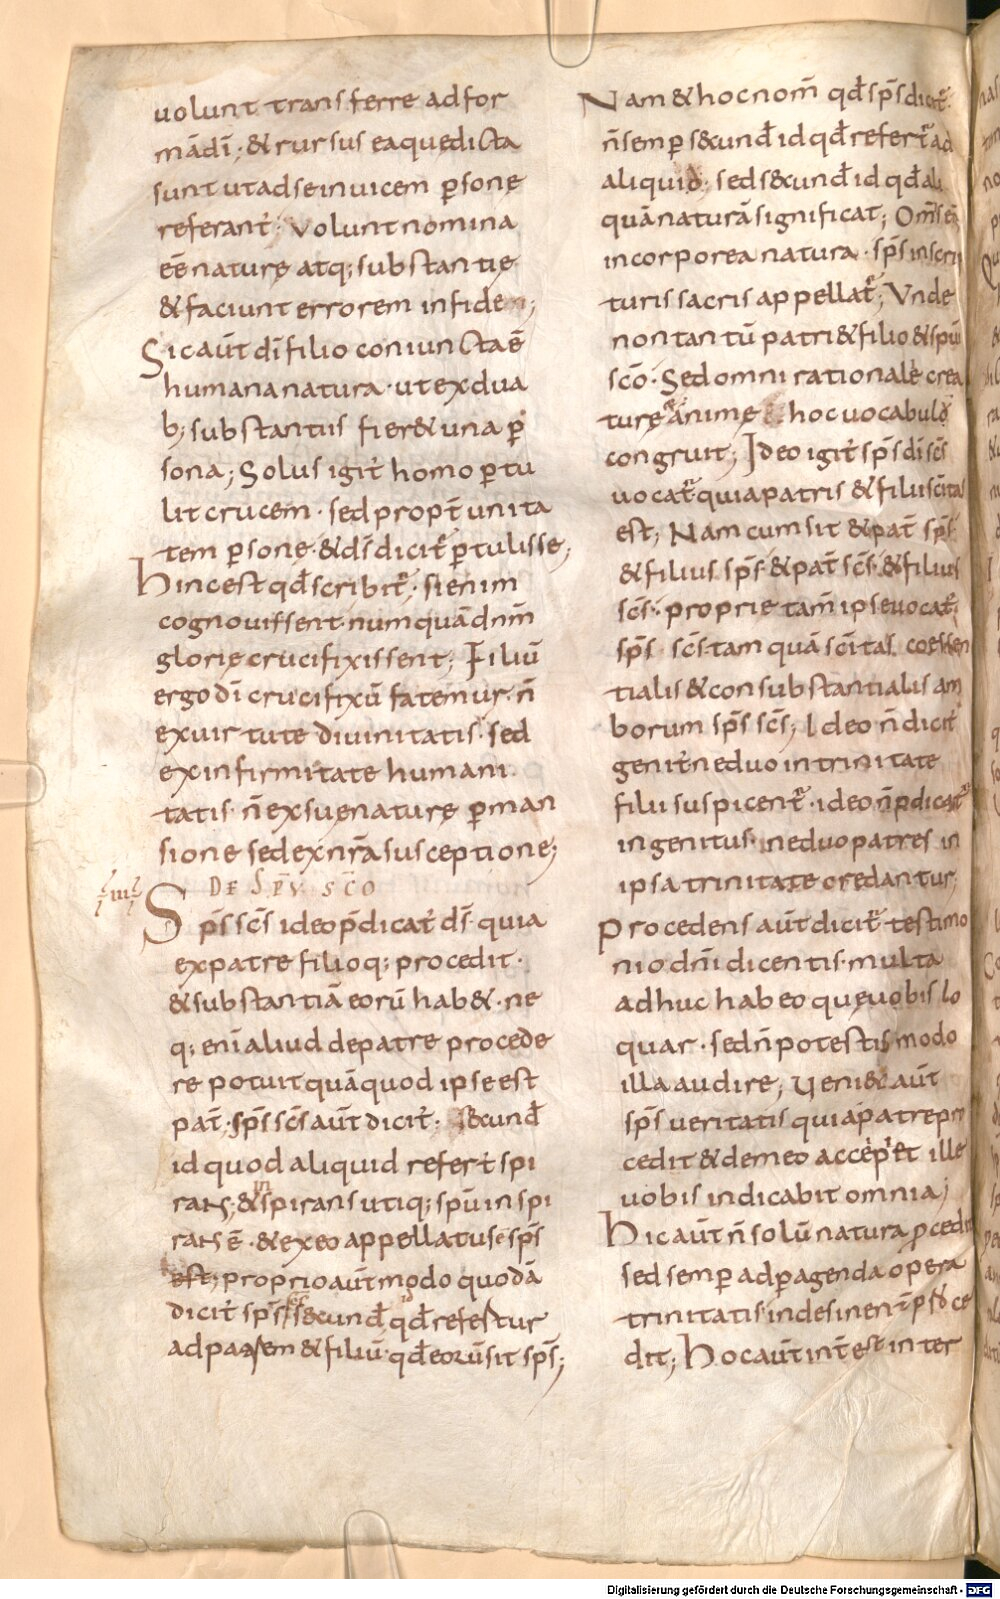 uolunt transferre adfor
mā dī; & rursus eaquedicta
sunt utadseinuicem psone
referant̄. Volunt nomina
eē naturę atq; substantię
& faciunt errorem infidem;
Sicaūt dī filio coniunctaē
humana natura. utexdua
b; substantiis fier& una p
sona; Solus igit̄ homo ptu
lit crucem. sed propt̄ unita
tem psonę. & d̄s dicit̄ ptulisse;
hincest qd̄ scribit̄. si enim
cognouissent numquā dn̄m
glorię crucifixissent; Filiū
ergo dī crucifixū fatemur. n̄
exuirtute diuinitatis. sed
exinfirmitate humani
tatis. n̄ exsuę naturę pman
sione sed exn̄ra susceptione;
DE SPŪ SC̄O
iiii
Sp̄s sc̄s ideo p̄dicat̄ d̄s. quia
expatre filioq; procedit.
& substantiā eorū hab&. ne
q; enī aliud depatre procede
re potuit quā quod ipse est
pat̄. sp̄s sc̄s aūt dicit̄. s&cund̄
id quod aliquid refert̄ spi
rans; & inspirans utiq; spū inspi
rans ē. & exeo appellatus ē sp̄s
est; proprio aūt modo quodā
dicit̄ sp̄s sc̄s s&cund̄ qd̄ refertur
adpatrem & filiū. qd̄ eorū sit sp̄s;
Nam & hoc nom̄ qd̄ sp̄s dicit̄
n̄ semp s&cund̄ id qd̄ refert̄ ad
aliquid. sed s&cund̄ id qd̄ ali
quā naturā significat; Om̄s eī
incorporea natura. sp̄s inscrip
turis sacris appellat̄; Vnde
non tantū patri & filio & spūi
sc̄o. Sed omni rationale crea
turę & animę hoc uocabulū
congruit; Ideo igit̄ sp̄s dī sc̄s
uocat̄ quia patris & filii sc̄ita
est; Nam cum sit & pat̄ sp̄s
& filius sp̄s & pat̄ sc̄s. & filius
sc̄s. proprie tam̄ ipse uocat̄
sp̄s sc̄s. tam quā sc̄itas coessen
tialis & consubstantialis am
borum sp̄s sc̄s; Ideo n̄ dicit̄
genit̄ ne duo in trinitate
filii suspicent̄. ideo n̄ p̄dicat̄
ingenitus. ne duo patres in
ipsa trinitate credantur;
Procedens aūt dicit̄ testimo
nio dn̄i dicentis. multa
adhuc habeo quę uobis lo
quar. sed n̄ potestis modo
illa audire; Ueni& aūt
sp̄s ueritatis qui apatre pro
cedit & demeo accepi& ille
uobis indicabit omnia;
Hic aūt n̄ solū natura pcedit
sed semp ad pagenda opera
trinitatis indesinent̄ pce
dit; hoc aūt int̄ est inter
Digitalisierung gefördert durch die Deutsche Forschungsgemeinschaft - DFG